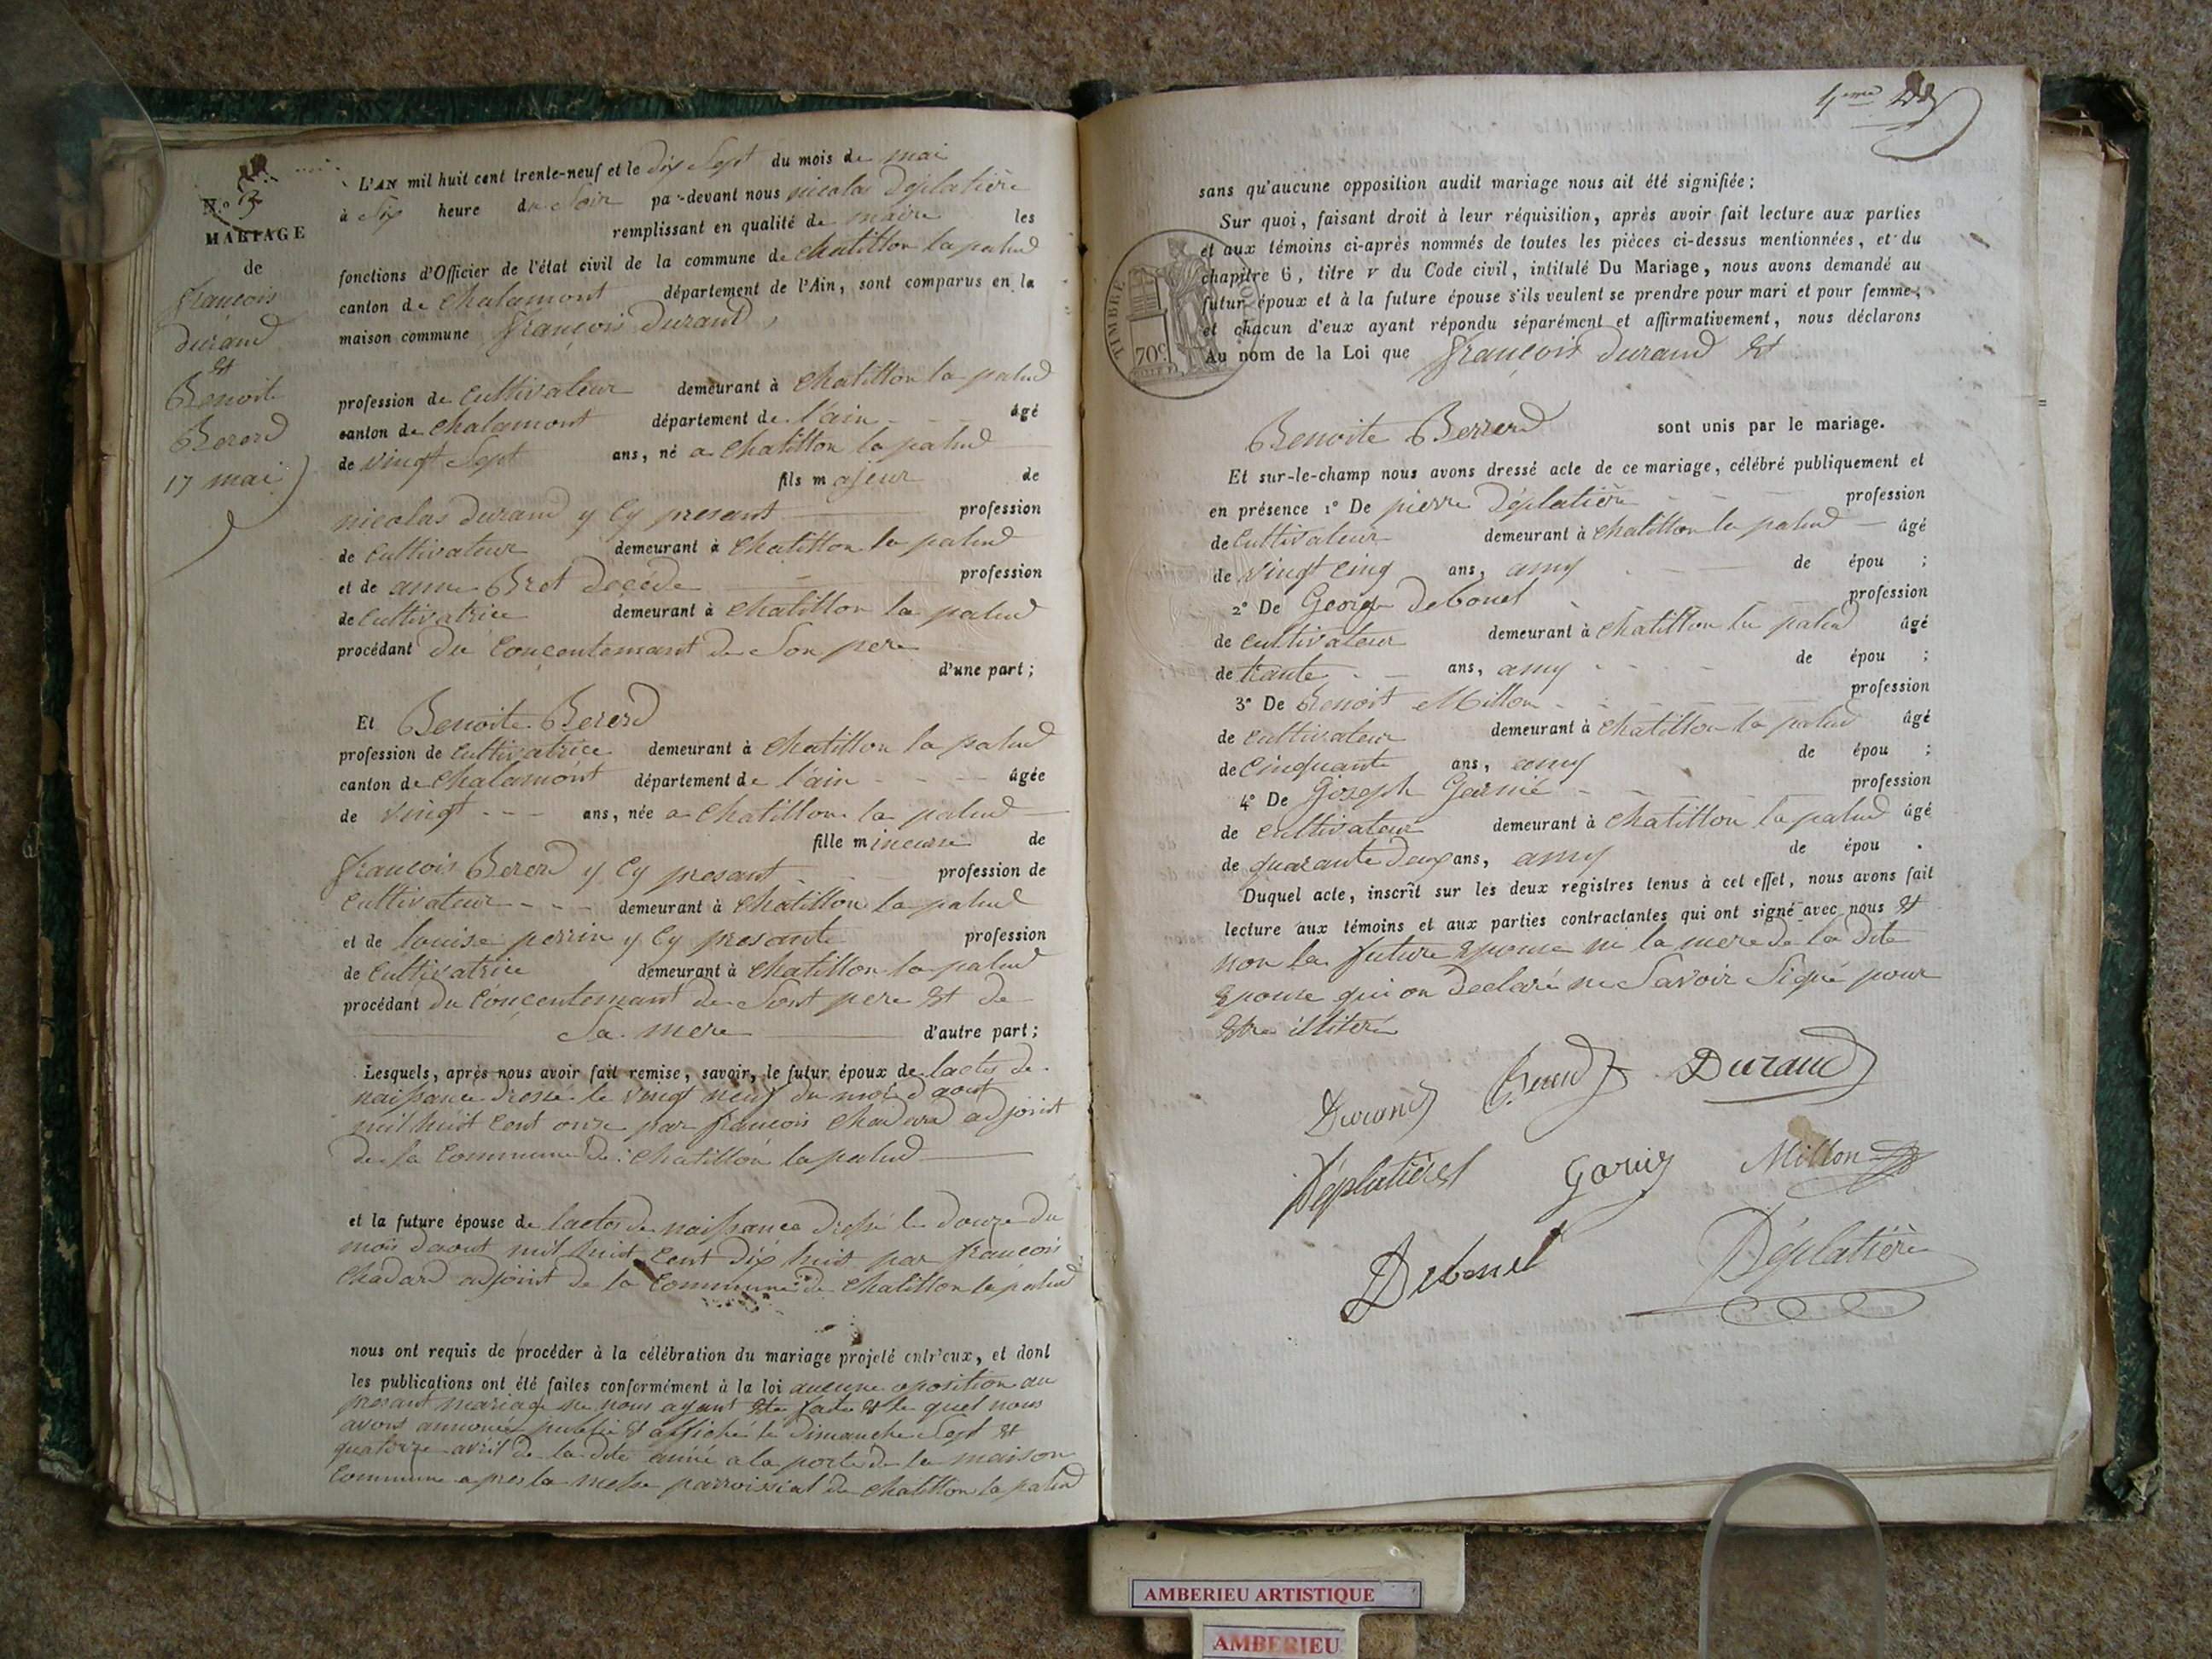 N.º 3
MARIAGE
de
françois
durand
et
Benoite
Bererd
17 mai
L'AN mil huit cent trente-neuf et le dix Sept du mois de mai
à Six heure du Soir par-devant nous nicolas Déplatière
remplissant en qualité de maire les
fonctions d'Officier de l'état civil de la commune de chatillon la palud
canton de chalamont département de l'Ain, sont comparus en la
maison commune françois durand,
profession de cultivateur demeurant à chatillon la palud
canton de chalamont département de l'ain âgé
de vingt Sept ans, né a chatillon la palud
fils majeur de
nicolas durand y cy presant profession
de cultivateur demeurant à chatillon la palud
et de anne Bret décéde profession
de cultivatrice demeurant à chatillon la palud
procédant du conçentemant de Son pere
d'une part;
Et Benoite Bererd
profession de cultivatrice demeurant à chatillon la palud
canton de chalamont département de l'ain âgée
de vingt ans, née a chatillon la palud
fille mineure de
françois Bererd y cy presant profession de
cultivateur demeurant à chatillon la palud
et de louise perrin y cy presante profession
de cultivatrice demeurant à chatillon la palud
procédant du conçentemant de Sont pere et de
Sa mere d'autre part;
Lesquels, après nous avoir fait remise, savoir, le futur époux de lactes de
naissance dressé le vingt neuf du mois d'aout
mil huit cent onze par françois chadard adjoint
de la commune de chatillon la palud
et la future épouse de lactes de naissance dressé le douze du
mois daout mil huit cent dix huit par françois
chadard adjoint de la commune de chatillon la palud
nous ont requis de procéder à la célébration du mariage projeté entr'eux, et dont
les publications ont été faites conformément à la loi aucune oposition au
presant mariage ne nous ayant ete faite et le quel nous
avons annoncé publié et affiché le dimanche Sept et
quatorze avril de la dite année a la porte de la maison
commune apres la messe parroissial de chatillon la palud
4eme
sans qu'aucune opposition audit mariage nous ait été signifiée;
Sur quoi, faisant droit à leur réquisition, après avoir fait lecture aux parties
et aux témoins ci-après nommés de toutes les pièces ci-dessus mentionnées, et du
chapitre 6, titre v du Code civil, intitulé Du Mariage, nous avons demandé au
futur époux et à la future épouse s'ils veulent se prendre pour mari et pour femme;
et chacun d'eux ayant répondu séparément et affirmativement, nous déclarons
Au nom de la Loi que françois durand et
TIMBRE
70c
Benoite Bererd sont unis par le mariage.
Et sur-le-champ nous avons dressé acte de ce mariage, célébré publiquement et
en présence 1º De pierre Déplatière profession
de cultivateur demeurant à chatillon la palud âgé
de vingt cinq ans, amy de épou ;
2º De George Debonet profession
de cultivateur demeurant à chatillon la palud âgé
de trante ans, amy de épou ;
3º De Benoit Millon profession
de cultivateur demeurant à chatillon la palud âgé
de cinquante ans, amy de épou ;
4º De Joseph Garnié profession
de cultivateur demeurant à chatillon la palud âgé
de quarante deux ans, amy de épou .
Duquel acte, inscrit sur les deux registres tenus à cet effet, nous avons fait
lecture aux témoins et aux parties contractantes qui ont signé avec nous et
non la future epouse ni la mere de la dite
epouse qui on declaré ne Savoir Signé pour
etre illiteré
Durand Durand
Déplatière Millon
Debonet Déplatière
AMBERIEU ARTISTIQUE
AMBERIEU